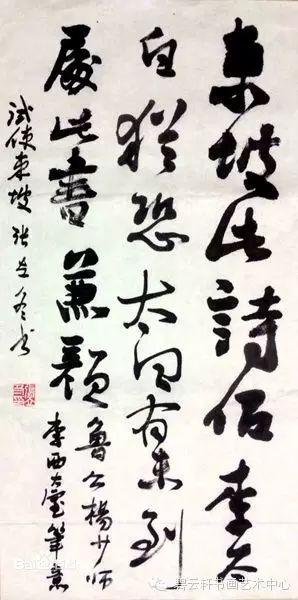 東坡此詩似李太
白猶恐太白有未到
處此書兼顏
魯公楊少師
李西臺筆意
試使東坡 張
碧云轩书画艺术中心